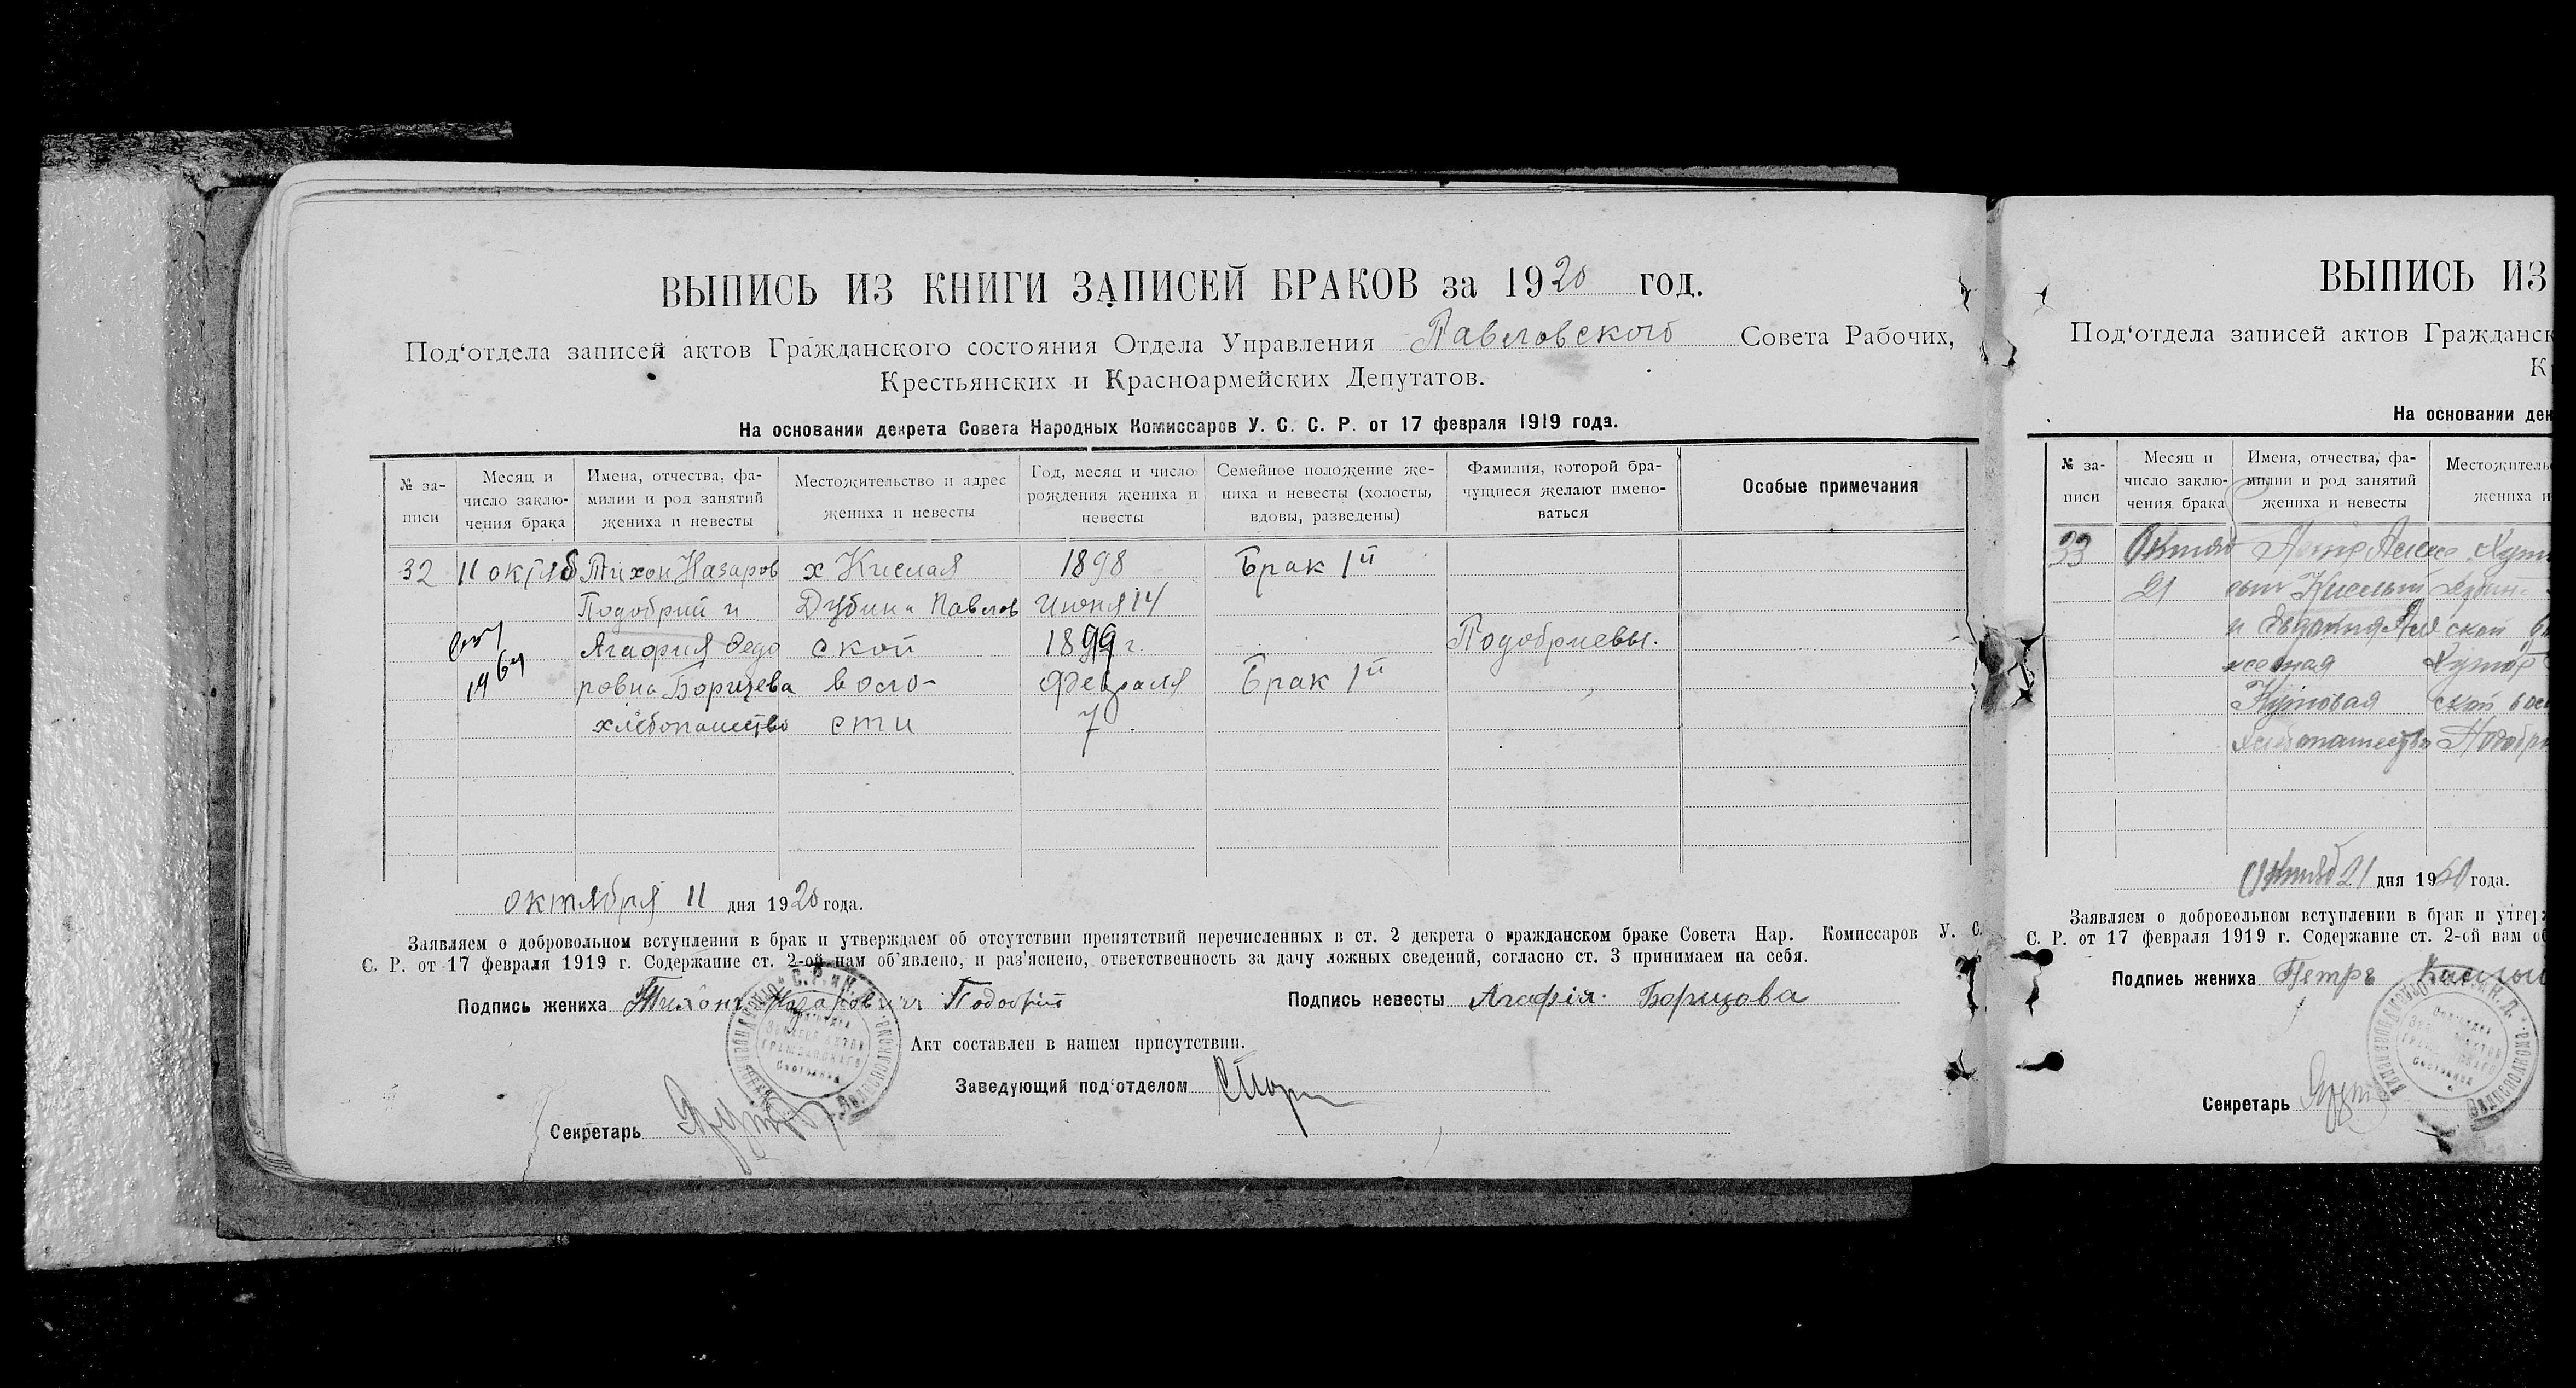 ВЫПИСЬ ИЗ КНИГИ ЗАПИСЕЙ БРАКОВ за 1920 год.
Под‘отдела записей актов Гражданского состояния Отдела Управления Павловского Совета Рабочих,
Крестьянских и Красноармейских Депутатов.
На основании декрета Совета Народных Комиссаров У. С. С. Р. от 17 февраля 1919 года.
№ за-
писи
Месяц и
число заклю-
чения брака
Имена, отчества, фа-
милии и род занятий
жениха и невесты
Местожительство и адрес
жениха и невесты
Год, месяц и число
рождения жениха и
невесты
Семейное положение же-
ниха и невесты (холосты,
вдовы, разведены)
Фамилия, которой бра-
чущиеся желают имено-
ваться
Особые примечания
32 11 октяб Тихон Назаров х Кислая 1898 Брак 1й
Подобрий и Дубина Павлов Июня 14
Агафия Федо ской 1899 г. Подобриевы.
ровна Борицева воло- Февраля Брак 1й
хлебопашество сти 7
октября 11 дня 1920 года.
Заявляем о добровольном вступлении в брак и утверждаем об отсутствии препятствий перечисленных в ст. 2 декрета о гражданском браке Совета Нар. Комиссаров У. С.
С. Р. от 17 февраля 1919 г. Содержание ст. 2-ой нам об‘явлено, и раз‘яснено, ответственность за дачу ложных сведений, согласно ст. 3 принимаем на себя.
Подпись жениха Тихонъ Назарович Подобрій
Подпись невесты Агафія Борицова
Акт составлен в нашем присутствии.
Заведующий под‘отделом
Секретарь
ВЫПИСЬ ИЗ
Под‘отдела записей актов Гражданск
К
На основании дек
№ за-
писи
Месяц и
число заклю-
чения брака
Имена, отчества, фа-
милии и род занятий
жениха и невесты
Местожитель
жениха и
33 Октяб
21 Кислый
и Евдокия ской
Кутовая ской
Хлебопашество
Октяб 21 дня 1920 года.
Заявляем о добровольном вступлении в брак и утвер
С. Р. от 17 февраля 1919 г. Содержание ст. 2-ой нам об
Подпись жениха Петръ Кислый
Секретарь